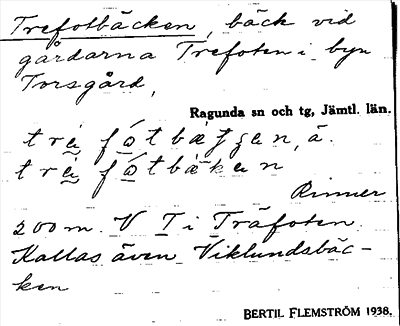 Trefotbäcken, bäck vid
gårdarna Trefoten i byn
Torsgård,
Ragunda sn och tg, Jämtl. län.
Rinner
200 m. V T i Träfoten.
Kallas även Viklundsbäc-
ken
BERTIL FLEMSTRÖM 1938.